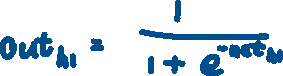 out_{h1} = \frac{1}{1 + e^{-net_{h1}}}